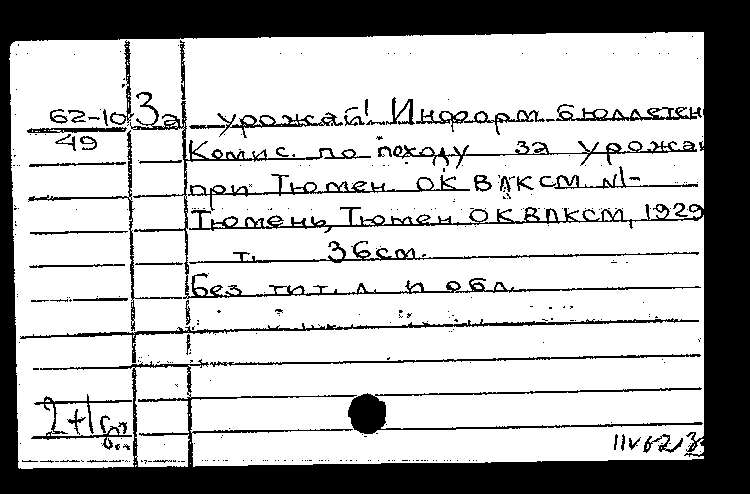 62-10 За урожай! Информ. бюллетен
49
Комис. по походу за урожай
при Тюмен. ОК ВЛКСМ. №1-
Тюмень, Тюмен. ОК ВЛКСМ, 1929
т. 36см.
Без тит. л. и обл.
2+1